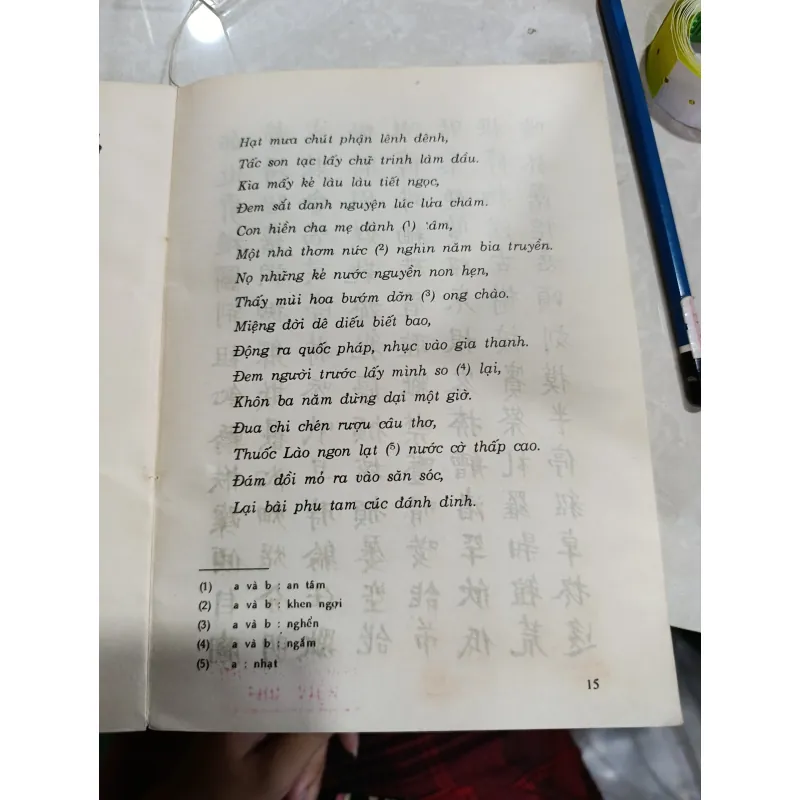 Hạt mưa chút phận lênh đênh,
Tấc son tạc lấy chữ trinh làm đầu.
Kìa mấy kẻ làu làu tiết ngọc,
Đem sắt đanh nguyện lúc lửa châm.
Con hiền cha mẹ đành (1) tâm,
Một nhà thơm nức (2) nghìn năm bia truyền.
Nọ những kẻ nước nguyền non hẹn,
Thấy mùi hoa bướm dỡn (3) ong chào.
Miệng đời dê diếu biết bao,
Động ra quốc pháp, nhục vào gia thanh.
Đem người trước lấy mình so (4) lại,
Khôn ba năm đừng dại một giờ.
Đua chi chén rượu câu thơ,
Thuốc Lào ngon lạt (5) nước cờ thấp cao.
Đám đồi mỏ ra vào săn sóc,
Lại bài phu tam cúc đánh đinh.
(1) a và b : an tâm
(2) a và b : khen ngợi
(3) a và b : nghển
(4) a và b : ngắm
(5) a : nhạt
15